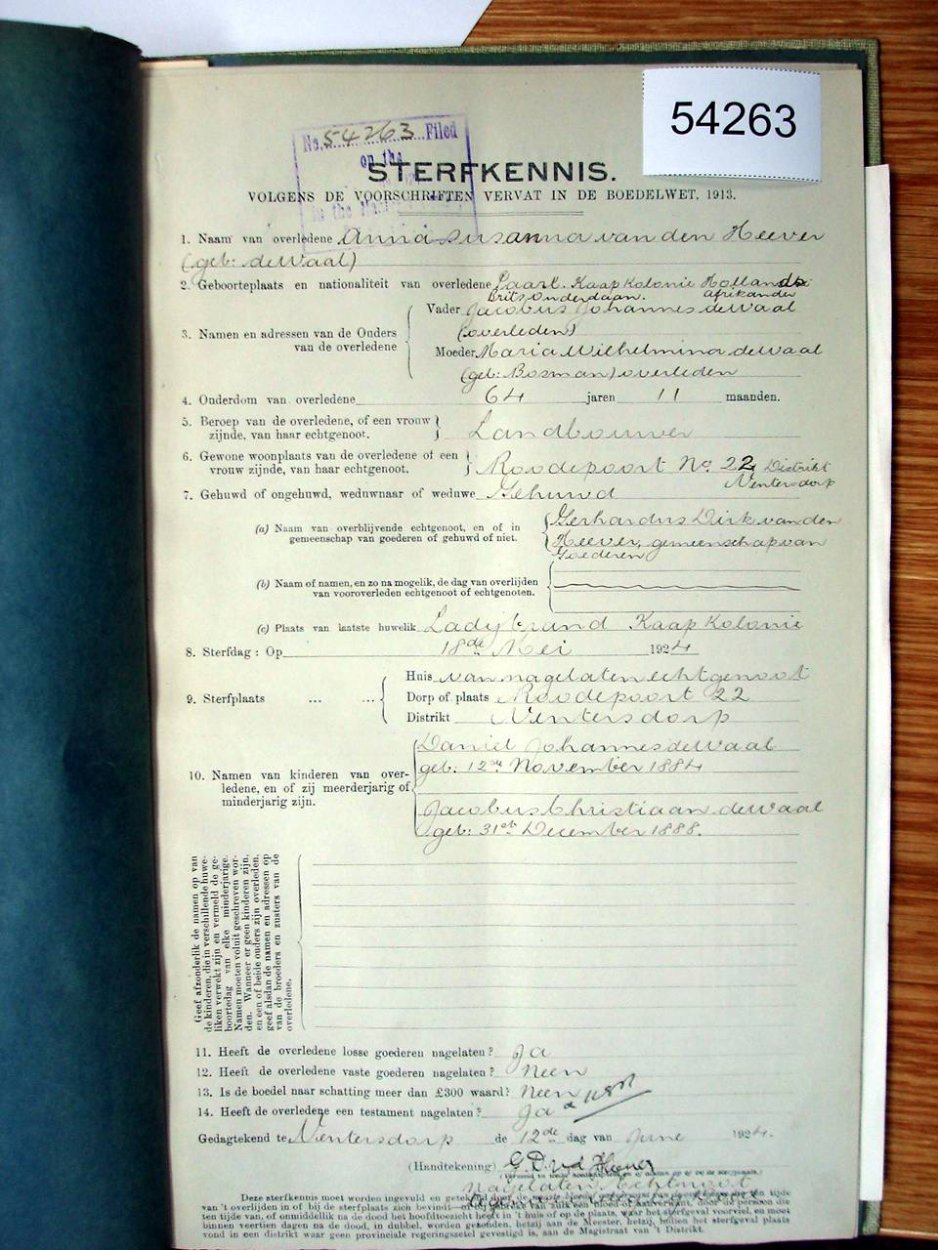 54263
No. 54263 Filed
on the
STERFKENNIS.
VOLGENS DE VOORSCHRIFTEN VERVAT IN DE BOEDELWET, 1913.
1. Naam van overledene Anna Susanna van den Heever
(geb: de Waal)
2. Geboorteplaats en nationaliteit van overledene Paarl. Kaap Kolonie Hollandse
Brits Onderdaan. afrikander
Vader Jacobus Johannes de Waal
(overleden)
3. Namen en adressen van de Ouders
van de overledene
Moeder Maria Wilhelmina de Waal
(geb: Bosman) overleden
4. Ouderdom van overledene 64 jaren 11 maanden.
5. Beroep van de overledene, of een vrouw
zijnde, van haar echtgenoot. Landbouwer
6. Gewone woonplaats van de overledene of een
vrouw zijnde, van haar echtgenoot. Roodepoort No 22 Distrikt
Ventersdorp
7. Gehuwd of ongehuwd, weduwnaar of weduwe Gehuwd
(a) Naam van overblijvende echtgenoot, en of in
gemeenschap van goederen of gehuwd of niet.
Gerhardus Dirk van den
Heever, gemeenschap van
Goederen
(b) Naam of namen, en zo na mogelik, de dag van overlijden
van vooroverleden echtgenoot of echtgenoten.
(c) Plaats van laatste huwelik Ladybrand Kaap Kolonie
8. Sterfdag: Op 18de Mei 1924
Huis van nagelaten echtgenoot
9. Sterfplaats ... ... Dorp of plaats Roodepoort 22
Distrikt Ventersdorp
Daniel Johannes de Waal
geb: 12de November 1884
10. Namen van kinderen van over-
ledene, en of zij meerderjarig of
minderjarig zijn.
Jacobus Christiaan de Waal
geb: 31st December 1888.
Geef afzonderlik de namen op van
de kinderen, die in verschillende huwe-
liken verwekt zijn en vermeld de ge-
boortedag van elke minderjarige.
Namen moeten voluit geschreven wor-
den. Wanneer er geen kinderen zijn,
en een of beide ouders zijn overleden,
geef alsdan de namen en adressen op
van de broeders en zusters van de
overledene.
11. Heeft de overledene losse goederen nagelaten? Ja
12. Heeft de overledene vaste goederen nagelaten? Neen
13. Is de boedel naar schatting meer dan £300 waard? Neen
14. Heeft de overledene een testament nagelaten? Ja
Gedagtekend te Ventersdorp de 12de dag van June 1924.
(Handtekening) G. D. vd Heever
Nagelaten Echtgenoot
Deze sterfkennis moet worden ingevuld en
van 't overlijden in of bij de sterfplaats zich bevindt
ten tijde van, of onmiddellik na de dood het hoofdtoezicht heeft in 't huis of op de plaats, waar het sterfgeval voorviel, en moet
binnen veertien dagen na de dood, in dubbel, worden gezonden, hetzij aan de Meester, hetzij, indien het sterfgeval plaats
vond in een distrikt waar geen provinciale regeringszetel gevestigd is, aan de Magistraat van 't Distrikt.